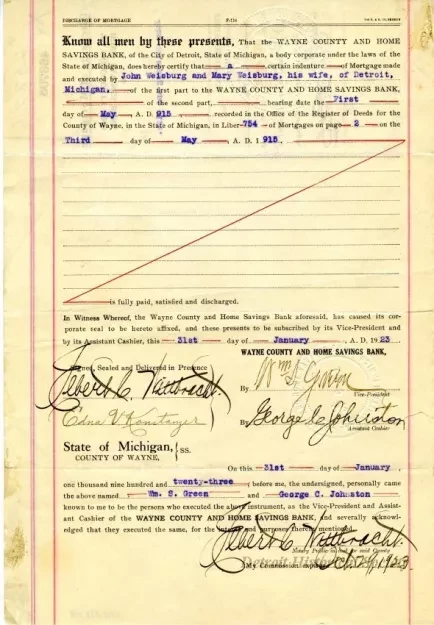 DISCHARGE OF MORTGAGE
Know all men by these presents, That the WAYNE COUNTY AND HOME
SAVINGS BANK, of the City of Detroit, State of Michigan, a body corporate under the laws of the
State of Michigan, does hereby certify that a certain indenture of Mortgage made
and executed by John Weisburg and Mary Weisburg, his wife, of Detroit,
Michigan, of the first part to the WAYNE COUNTY AND HOME SAVINGS BANK,
of the second part, bearing date the First
day of May A. D. 1915 recorded in the Office of the Register of Deeds for the
County of Wayne, in the State of Michigan, in Liber 754 of Mortgages on page 2 on the
Third day of May, A. D. 1915,
is fully paid, satisfied and discharged.
In Witness Whereof, the Wayne County and Home Savings Bank aforesaid, has caused its cor-
porate seal to be hereto affixed, and these presents to be subscribed by its Vice-President and
by its Assistant Cashier, this 31st day of January, A. D. 1923
WAYNE COUNTY AND HOME SAVINGS BANK,
Signed, Sealed and Delivered in Presence
Albert C. Wittbracht
By Wm S. Green
Vice-President
Edna V Konstanzer
By George C Johnston
Assistant Cashier
State of Michigan,
COUNTY OF WAYNE, } ss.
On this 31st day of January,
one thousand nine hundred and twenty-three, before me, the undersigned, personally came
the above named Wm. S. Green and George C. Johnston
known to me to be the persons who executed the above instrument, as the Vice-President and Assist-
ant Cashier of the WAYNE COUNTY AND HOME SAVINGS BANK, and severally acknowl-
edged that they executed the same, for the intent and purposes therein mentioned.
Albert C Wittbracht
Notary Public in and for said County
My Commission expires 1923